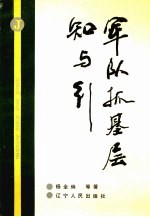 军队抓基层
知与行
J
等著
辽宁人民出版社